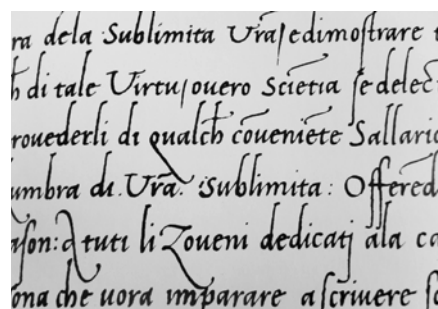 ra dela Sublimita Vr̃a, e dimostrare
ch̃ di tale Virtu, ouero Sciẽtia se delec
rouederli di qualch̃ cõueniẽte Sallario
umbra di. Vr̃a. Sublimita: Offered
ason: a tuti li Zoueni dedicatj ala ca
ona che uora imparare a scriuere